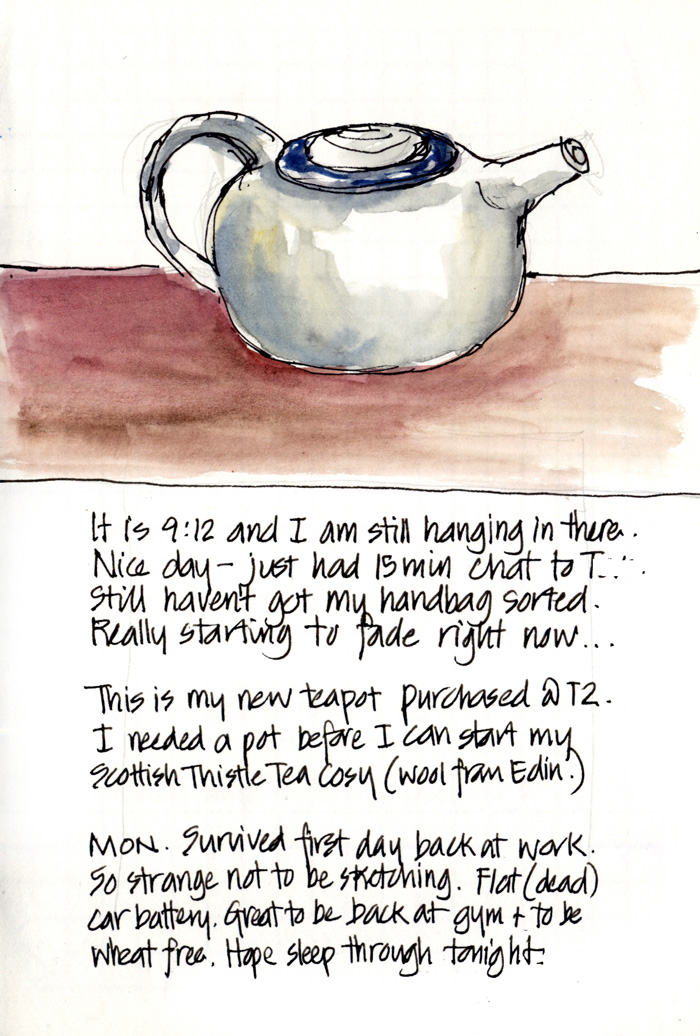 It is 9:12 and I am still hanging in there.
Nice day - just had 15 min chat to T...
Still haven't got my handbag sorted.
Really starting to fade right now...
This is my new teapot purchased @ T2.
I needed a pot before I can start my
Scottish Thistle Tea Cosy (wool from Edin.)
MON. Survived first day back at work.
So strange not to be sketching. Flat (dead)
car battery. Great to be back at gym + to be
wheat free. Hope sleep through tonight.